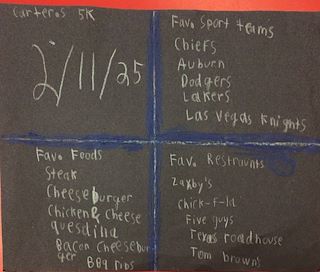 Carteros 5K
2/11/25
Favo Sport teams
Chiefs
Auburn
Dodgers
Lakers
Las Vegas Knights
Favo Foods
Steak
Cheeseburger
Chicken & Cheese
quesdilla
Bacon Cheesebur-
ger
BBQ ribs
Favo Restraunts
Zaxby's
Chick-F-la
Five guys
Texas roadhouse
Tom browns